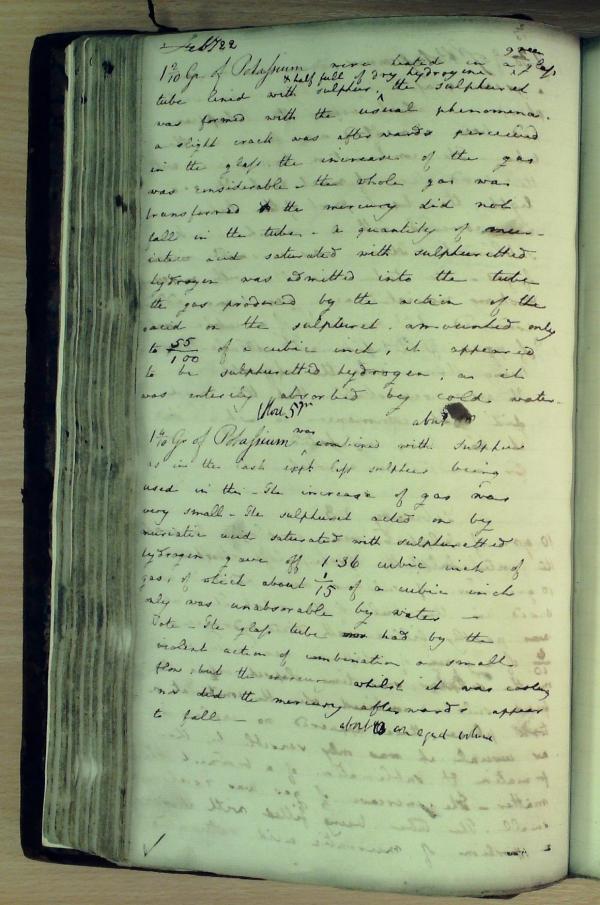 Feb 22
green
1 2/10 Gr of Potassium were heated in a glass
& half full of dry hydrogene
tube lined with sulphur, the sulphuret
was formed with the usual phenomena.
a slight crack was afterwards perceived
in the glass the increase of the gas
was considerable - the whole gas was
transferred & the mercury did not
fall in the tube - a quantity of mur-
iatic acid saturated with sulphuretted
hydrogen was admitted into the tube
the gas produced by the action of the
acid on the sulphuret. amounted only
to 55/100 of a cubic inch, it appeared
to be sulphuretted hydrogen, as it
was entirely absorbed by cold water.
about
1 Gr of Potassium was combined with sulphur
as in the last expt less sulphur being
used in this - The increase of gas was
very small - The sulphuret acted on by
muriatic acid saturated with sulphuretted
hydrogen gave off 1.36 cubic inch of
gas, of which about 1/15 of a cubic inch
only was unabsorbable by water -
Note - The glass tube had by the
violent action of combination a small
flaw, but the mercury whilst it was cooling
nor did the mercury afterwards appear
to fall -
about an equal volume